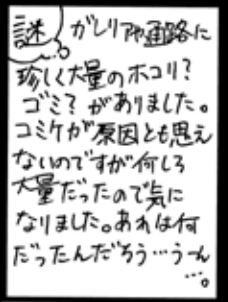 謎 ガレリアや通路に
珍しく大量のホコリ?
ゴミ?がありました。
コミケが原因とも思え
ないのですが何しろ
大量だったので気に
なりました。あれは何
だったんだろう…うーん
…。